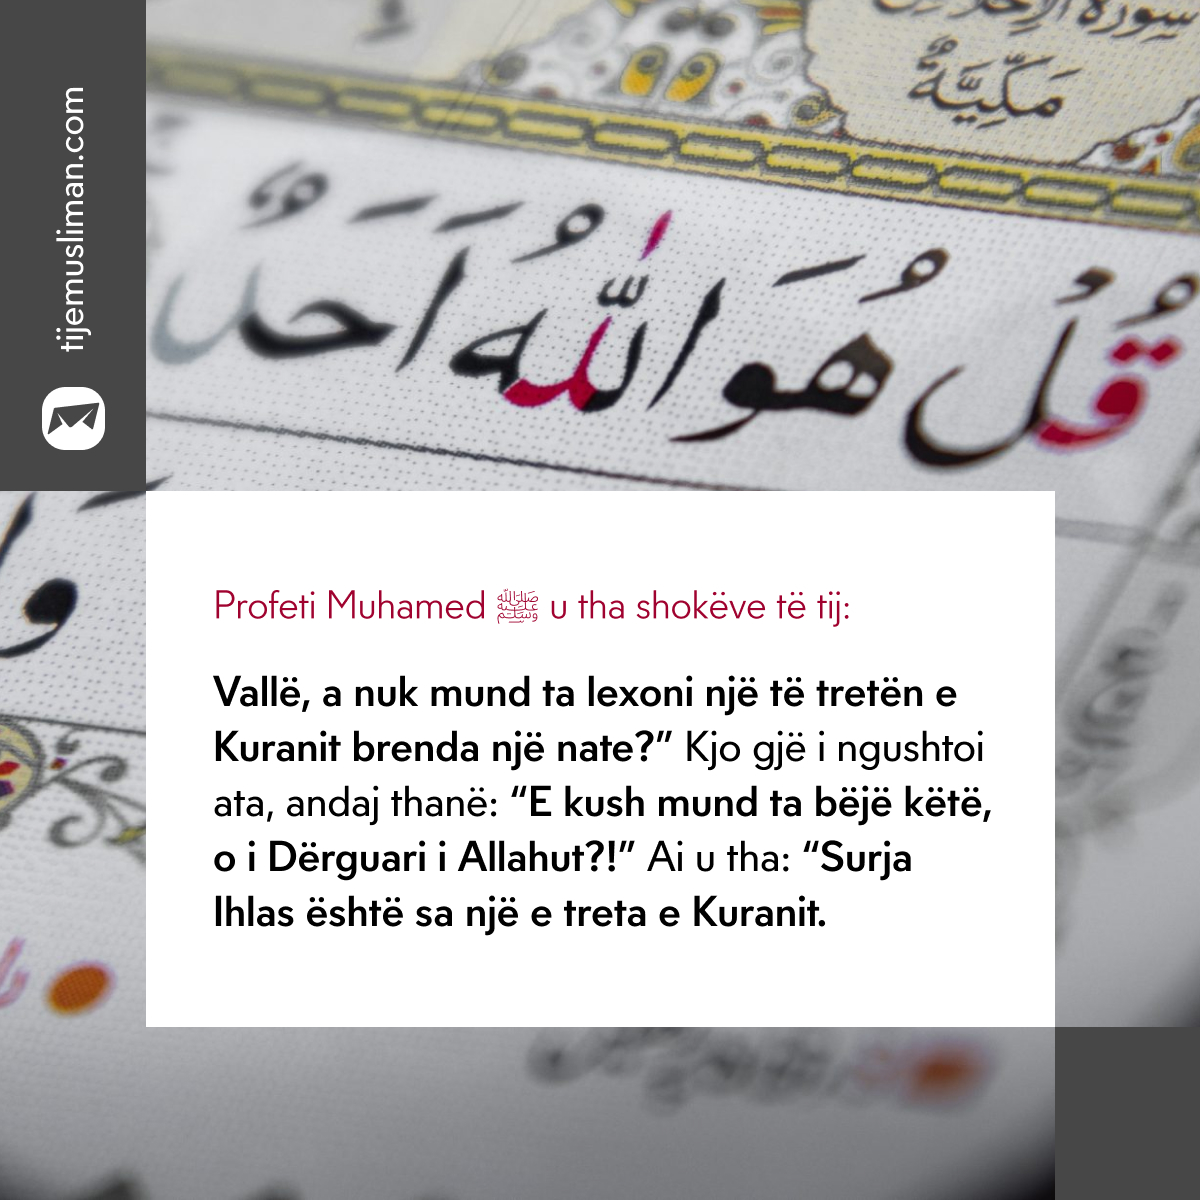 tijemusliman.com
سورة الإخلاص
مَكِّيَّةٌ
قُلْ هُوَ اللَّهُ أَحَدٌ
Profeti Muhamed ﷺ u tha shokëve të tij:
Vallë, a nuk mund ta lexoni një të tretën e
Kuranit brenda një nate?” Kjo gjë i ngushtoi
ata, andaj thanë: “E kush mund ta bëjë këtë,
o i Dërguari i Allahut?!” Ai u tha: “Surja
Ihlas është sa një e treta e Kuranit.